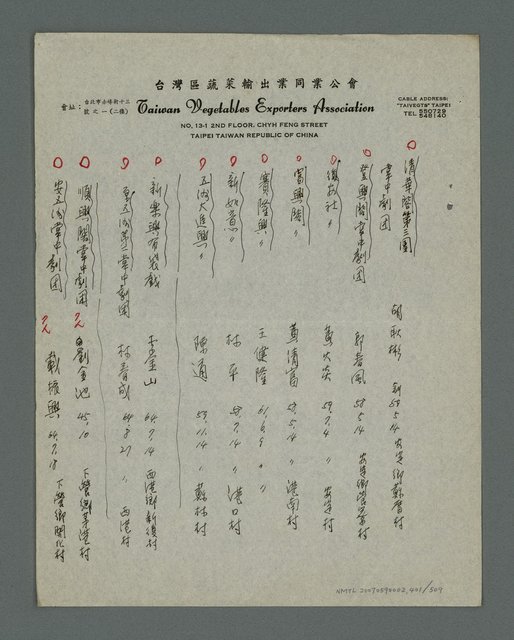 台灣區蔬菜輸出業同業公會
會址：台北市赤峰街十三號之一(二樓)
Taiwan Vegetables Exporters Association
NO. 13-1 2ND FLOOR, CHYH FENG STREET
TAIPEI TAIWAN REPUBLIC OF CHINA
CABLE ADDRESS:
"TAIVEGTS" TAIPEI
TEL 550729
548140
清華閣第三團
掌中劇團
登興閣掌中劇團 郭春風 58.5.14
復安社〃 黃火炎 58.7.4 〃
富興閣〃 黃清富 58.5.14 〃 港南村
寶隆興〃 王健隆 61.6.9 〃 〃
新如意〃 林平 58.7.14 〃 港口村
五洲大進興〃 陳通 58.11.14 〃 蘇林村
新樂興布袋戲 李金山 64.7.14 西港鄉新復村
五洲第三掌中劇團 林春成 64.8.27 〃 西港村
順興閣掌中劇團 劉金池 45.10 下營鄉茅港村
安五洲掌中劇團 戴振興 64.7.18 下營鄉開化村
NMTL 20070590002, 401/509